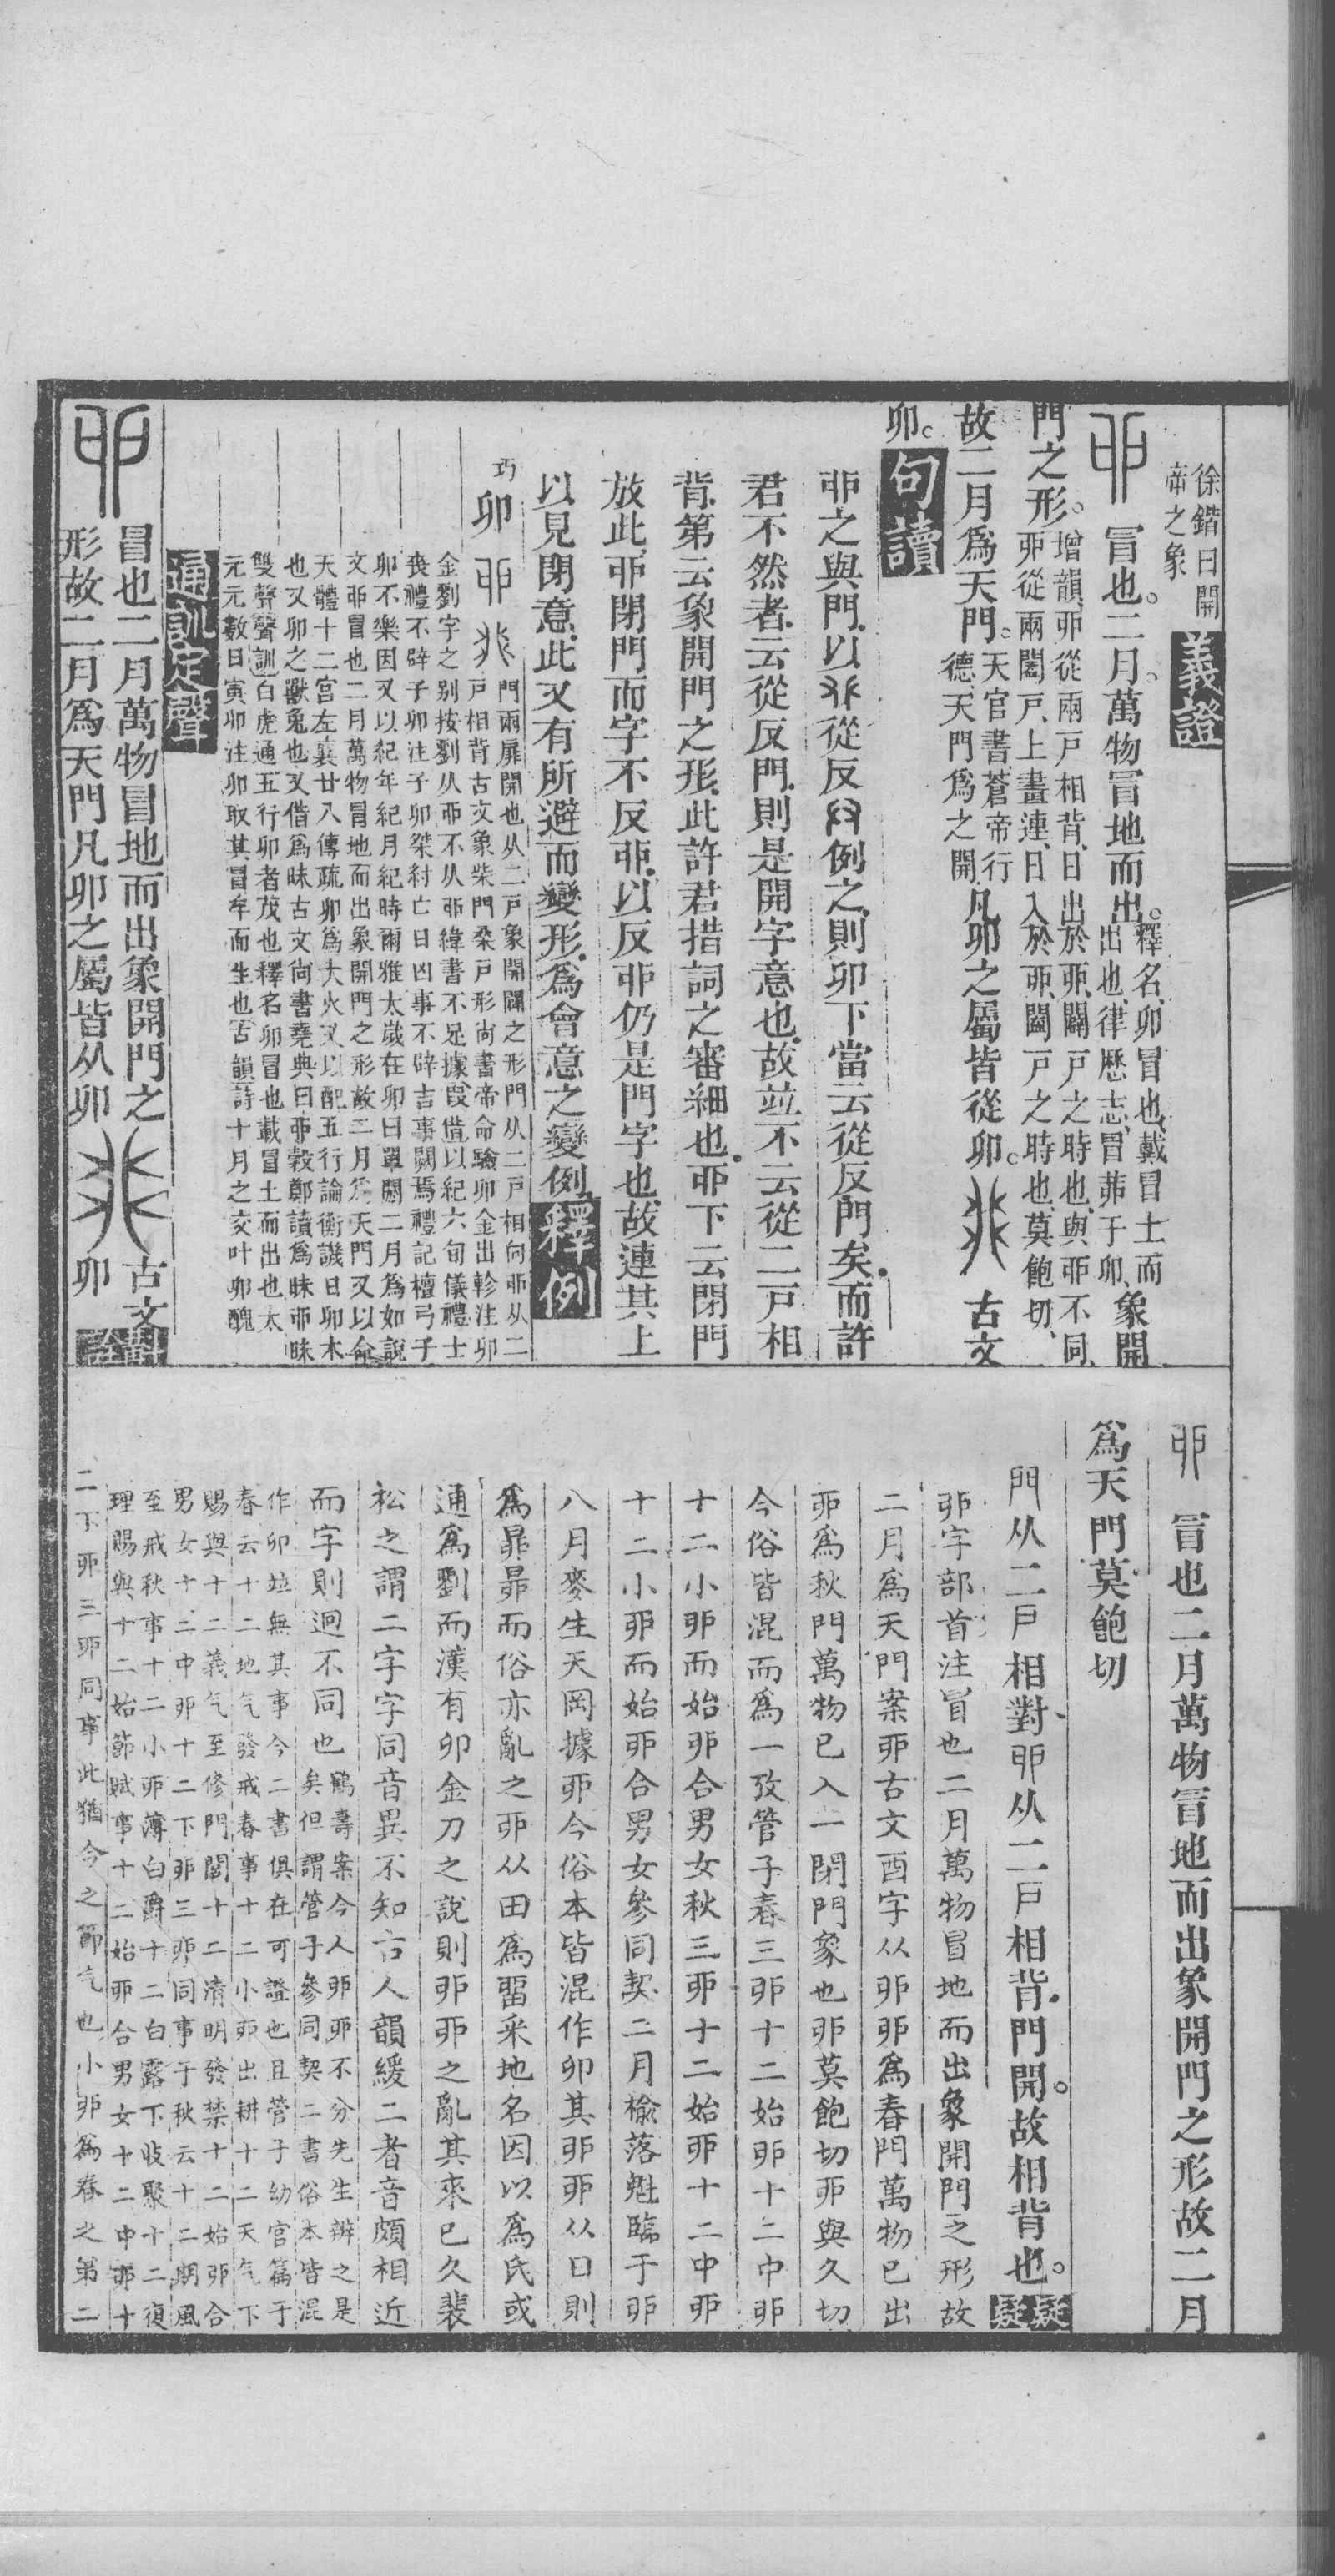 徐鍇曰開
帝之象
義證
冒也。二月。萬物冒地而出。
釋名、卯冒也、戴冒土而
出也、律歷志、冒茆于卯、
象開
門之形。
增韻、丣從兩戶相背、日出於丣、闢戶之時也、與丣不同、
丣從兩闔戶、上畫連、日入於丣、闔戶之時也、莫飽切、
故二月爲天門。
天官書、蒼帝行
德、天門爲之開
凡卯之屬皆從卯。
古文
卯。
句讀
丣之與門、以
從反
例之、則卯下當云從反門矣、而許
君不然者、云從反門、則是開字意也、故竝不云從二戶相
背、第云象開門之形、此許君措詞之審細也、丣下云閉門
放此、丣閉門而字不反丣、以反丣仍是門字也、故連其上
以見閉意、此又有所避而變形、爲會意之變例、
釋例
巧
卯
門兩扉開也从二戶象開闢之形門从二戶相向丣从二
戶相背古文象柴門桑戶形尚書帝命驗卯金出軫注卯
金劉字之別按劉从丣不从丣緯書不足據叚借以紀六旬儀禮士
喪禮不辟子卯注子卯桀紂亡日凶事不辟吉事闕焉禮記檀弓子
卯不樂因又以紀年紀月紀時爾雅太歲在卯曰單閼二月爲如說
文丣冒也二月萬物冒地而出象開門之形故二月爲天門又以命
天體十二宮左襄廿八傳疏卯爲大火又以配五行論衡譏日卯木
也又卯之獸兔也又借爲昧古文尚書堯典曰丣穀鄭讀爲昧丣昧
雙聲聲訓白虎通五行卯者茂也釋名卯冒也載冒土而出也太
元元數曰寅卯注卯取其冒牟而生也古韻詩十月之交叶卯醜
通訓定聲
冒也二月萬物冒地而出象開門之
形故二月爲天門凡卯之屬皆从卯
古文
卯
冒也二月萬物冒地而出象開門之形故二月
爲天門莫飽切
門从二戶相對、丣从二戶相背、門開。故相背也。
疑疑
丣字部首注冒也二月萬物冒地而出象開門之形故
二月爲天門案丣古文酉字从丣丣爲春門萬物已出
丣爲秋門萬物已入一閉門象也丣莫飽切丣與久切
今俗皆混而爲一攷管子春三丣十二始丣十二中丣
十二小丣而始丣合男女秋三丣十二始丣十二中丣
十二小丣而始丣合男女參同契二月榆落魁臨于丣
八月麥生天岡據丣今俗本皆混作卯其丣丣从日則
爲昴昴而俗亦亂之丣从田爲畱采地名因以爲氏或
通爲劉而漢有卯金刀之說則丣丣之亂其來已久裴
松之謂二字字同音異不知古人韻緩二者音頗相近
而字則迥不同也
鷗壽案今人丣丣不分先生辨之是
矣但謂管子參同契二書俗本皆混
作卯竝無其事今二書俱在可證也且管子幼官篇于
春云十二地气發戒春事十二小丣出耕十二天气下
賜與十二義气至修門閭十二清明發禁十二始丣合
男女十二中丣十二下丣三丣同事于秋云十二期風
至戒秋事十二小丣薄白爵十二白露下收聚十二復
理賜與十二始節賦事十二始丣合男女十二中丣十
二下丣三丣同事此猶今之節气也小丣爲春之第二